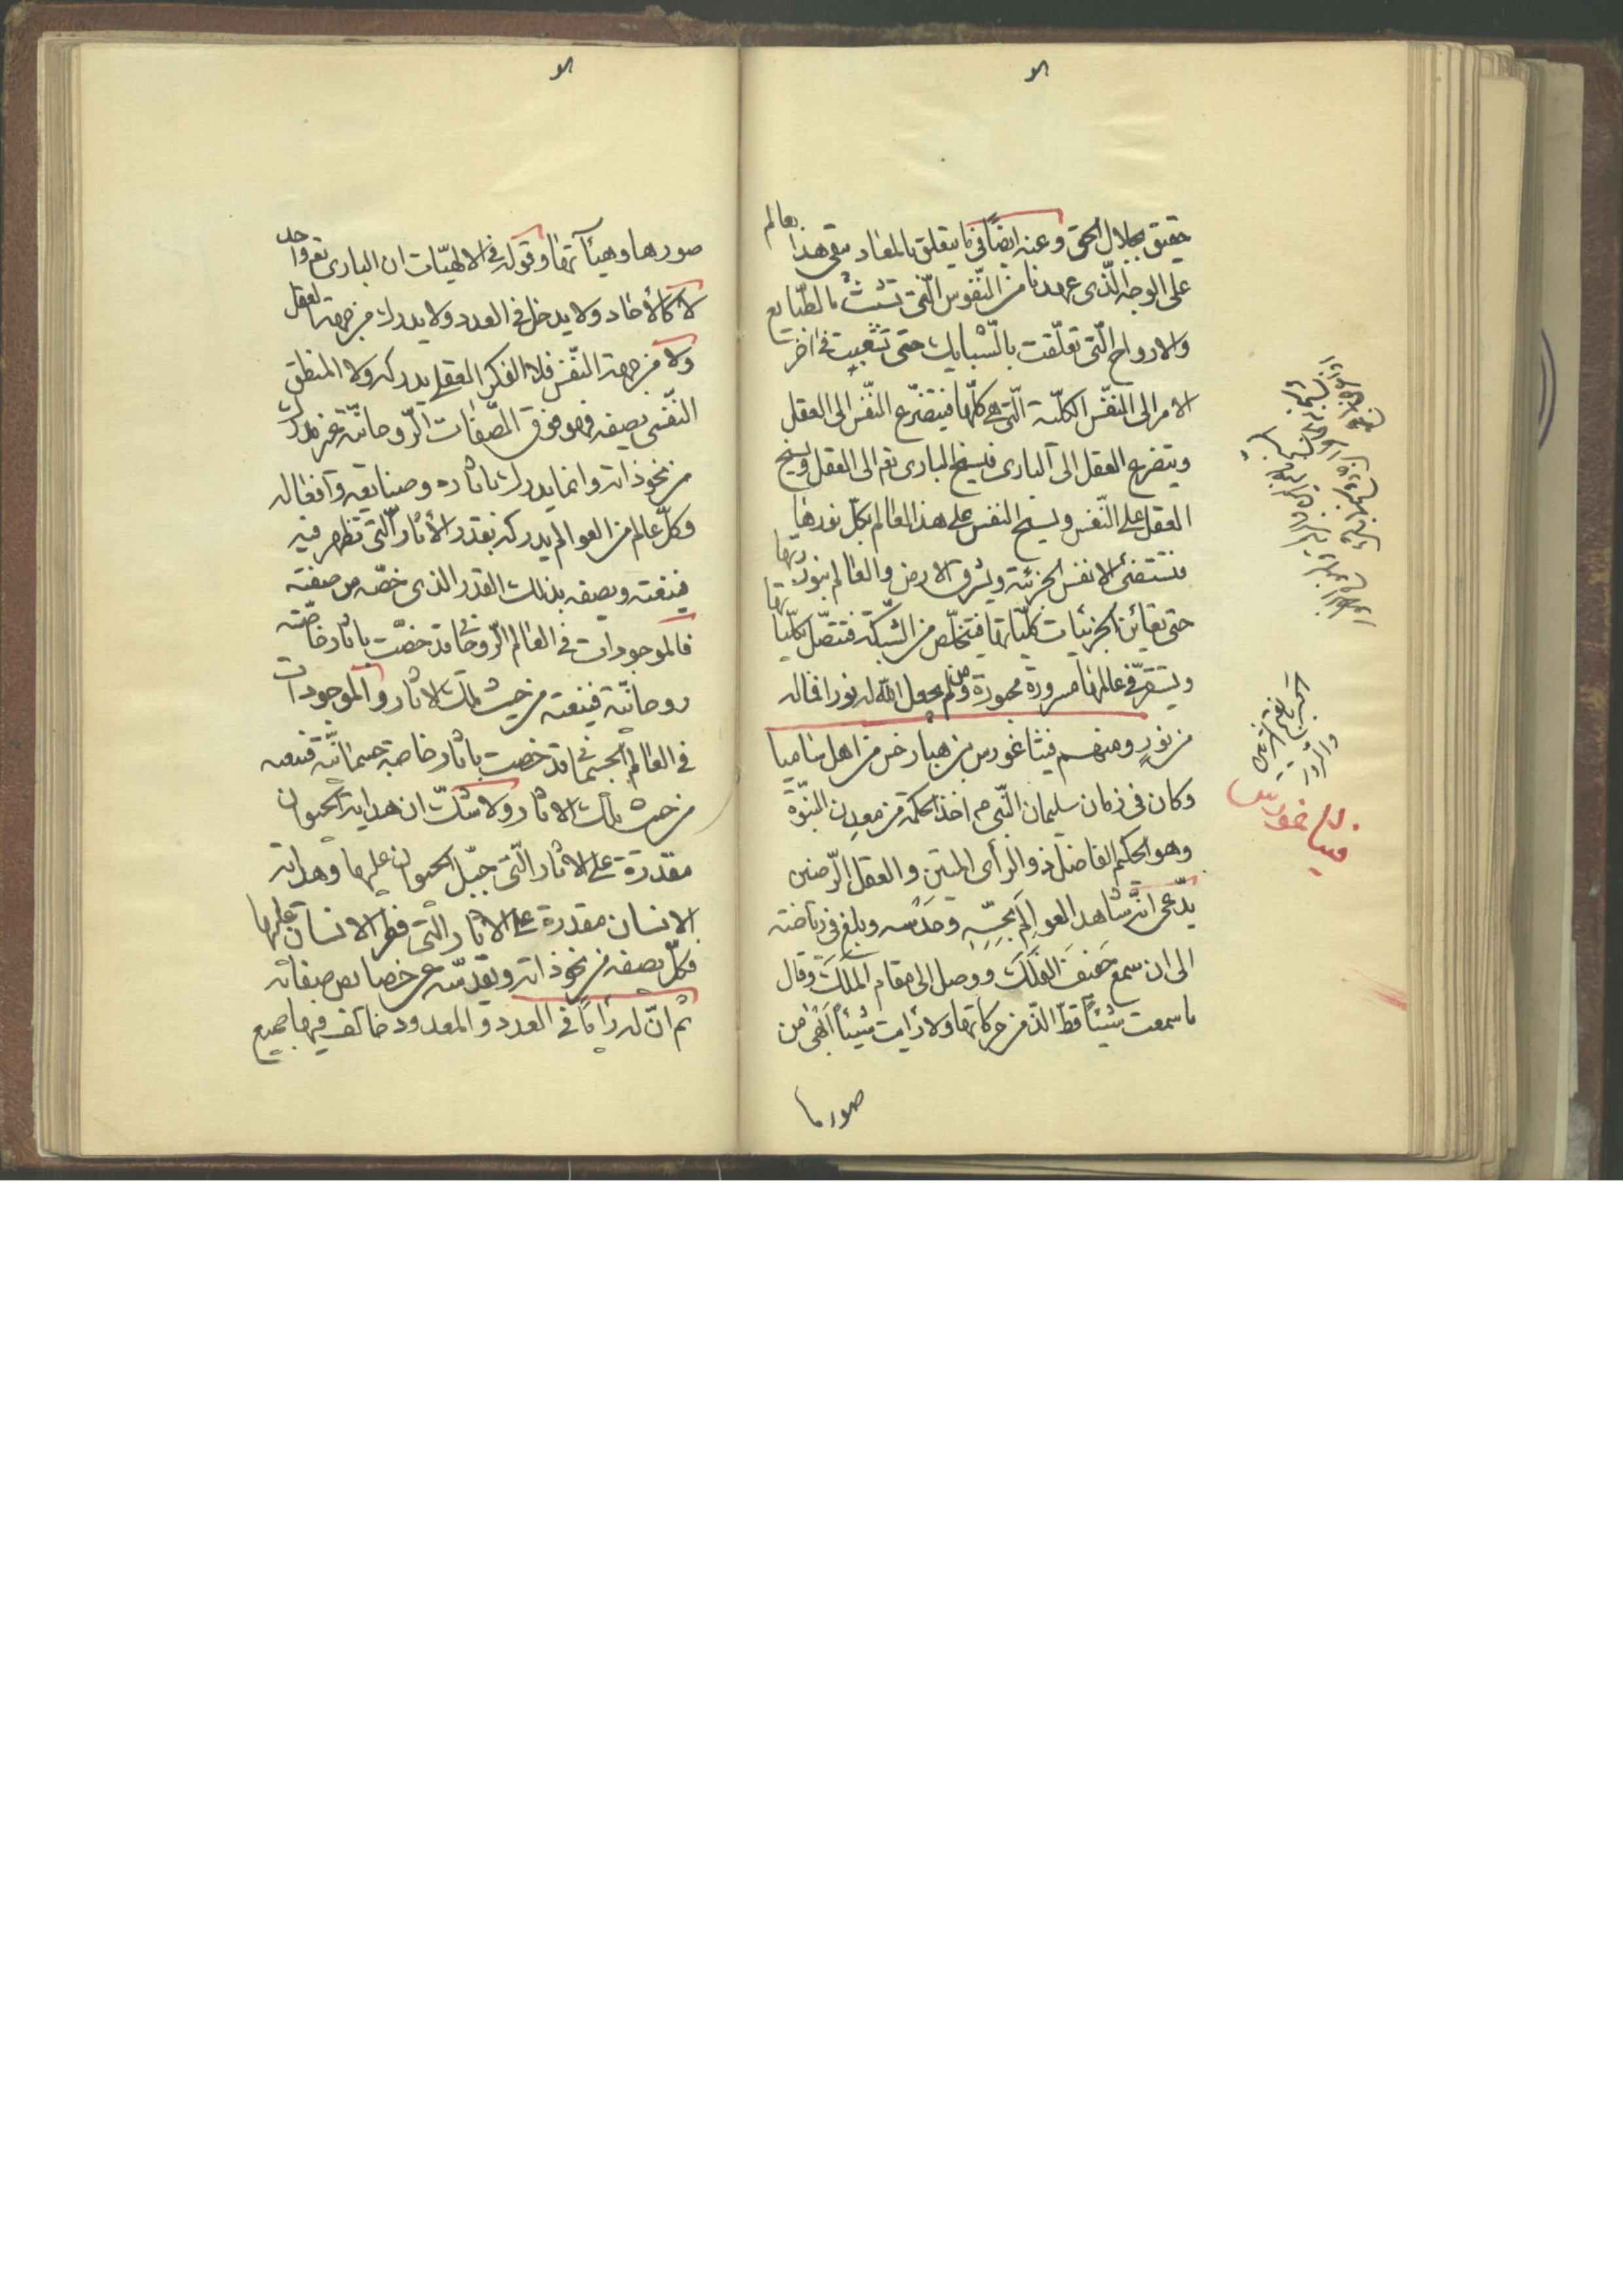 حقيق بجلال الحق وعنه ايضاً فى ما يتعلق بالمعاد يبقى هذا العالم
على الوجه الذى عهدنا من النّفوس الّتى تشبّثت بالطّبايع
والارواح الّتى تعلّقت بالشّبايك حتى تستغيث فى اخر
الامر الى النّفس الكلّية الّتى هى كلّها فيتضرّع النّفس الى العقل
ويتضرع العقل الى البارى فيسيح البارى تعم الى العقل ويسيح
العقل على النّفس ويسيح النفس على هذا العالم بكلّ نورها
فتستضئ الانفس الجزئية ويشرق الارض والعالم بنور ربّها
حتى تعاين الجزئيات كلّياتها فيتخلّص من الشّبكة فتتصل بكلّياتها
ويستقرّ فى عالمها مسرورة محبورة ومن لم يجعل الله له نورا فماله
من نور ومنهم فيثاغورس بن منسارخس من اهل ساميا
وكان فى زمان سليمان النّبى م اخذ الحكمة من معدن النبوّة
وهو الحكيم الفاضل ذو الرأى المتين والعقل الرّصين
يدّعى انه شاهد العوالم بحسّه وحدسه وبلغ فى رياضته
الى ان سمع حفيف الفلك ووصل الى مقام الملك وقال
ما سمعت شيئاً قطّ الذّ من حركاتها ولا رأيت شيئاً ابهى من
صورها
فيثاغورس
صورها وهيئاتها وقوله فى الالهيّات ان البارى تعم واحد
لا كالأحاد ولا يدخل فى العدد ولا يدرك من جهة العقل
ولا من جهة النّفس فلا الفكر العقلى يدركه ولا المنطق
النّفسى يصفه فهو فوق الصّفات الرّوحانيّة غير مدرك
من نحو ذاته وانما يدرك باثاره وصنايعه وافعاله
وكلّ عالم من العوالم يدركه بقدر الأثار الّتى تظهر فيه
فينعته ويصفه بذلك القدر الذى خصّه من صنعته
فالموجودات فى العالم الرّوحانى قد خصّت باثار خاصّة
روحانيّة فينعته من حيث تلك الاثار والموجودات
فى العالم الجسمانى قد خصت باثار خاصة جسمانيّة فينعته
من حيث تلك الاثار ولا شكّ ان هداية الحيوان
مقدرة على الاثار الّتى جبّل الحيوان عليها وهداية
الانسان مقدرة على الاثار الّتى فطر الانسان عليها
فكلّ يصفه من نحو ذاته ويقدّسه عن خصايص صفاته
ثم انّ له رأياً فى العدد والمعدود خالف فيها جميع